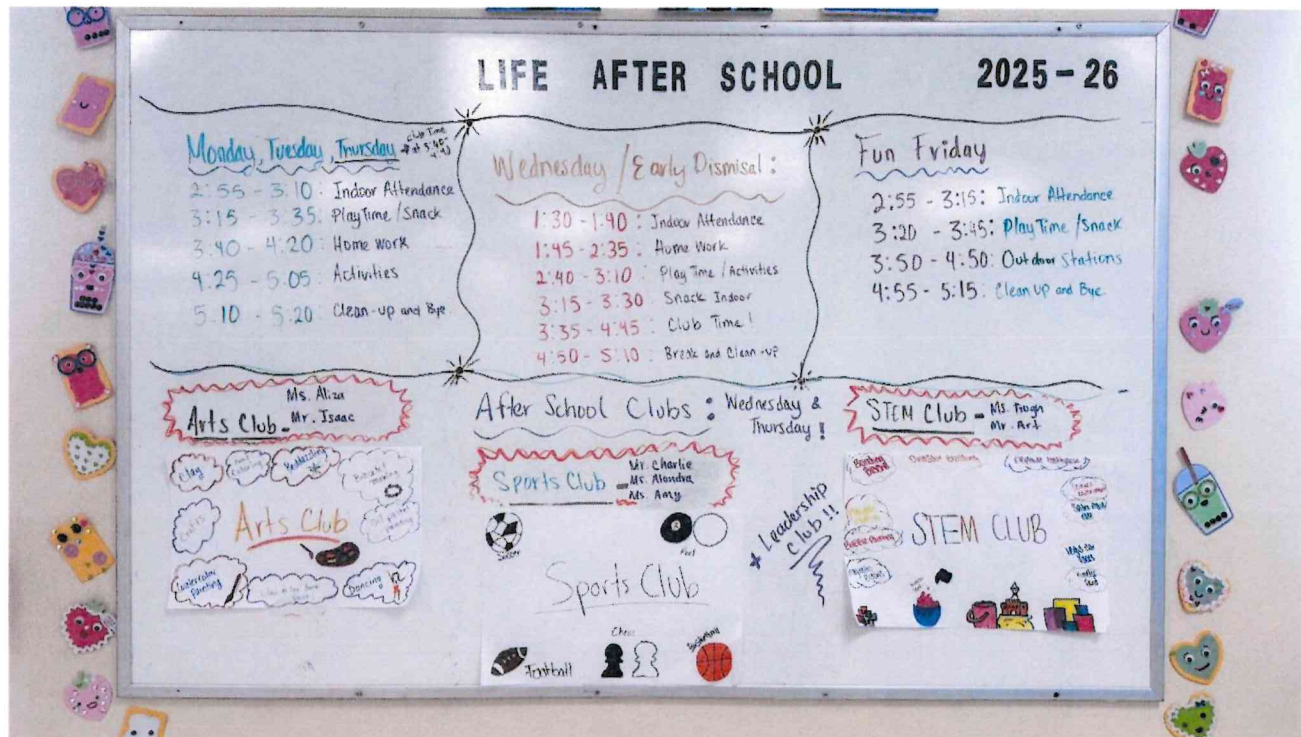 LIFE AFTER SCHOOL 2025-26
Monday, Tuesday, Thursday
Club Time
2:55 - 3:10: Indoor Attendance
3:15 - 3:35: PlayTime/Snack
3:40 - 4:20: Home Work
4:25 - 5:05: Activities
5:10 - 5:20: Clean-up and Bye
Wednesday/Early Dismisal:
1:30 - 1:40: Indoor Attendance
1:45 - 2:35: Home Work
2:40 - 3:10: Play Time/Activities
3:15 - 3:30: Snack Indoor
3:35 - 4:45: Club Time!
4:50 - 5:10: Break and Clean-up
Fun Friday
2:55 - 3:15: Indoor Attendance
3:20 - 3:45: PlayTime/Snack
3:50 - 4:50: Outdoor Stations
4:55 - 5:15: Clean Up and Bye
Arts Club - Ms. Aliza
Mr. Isaac
Clay
Coloring
Crafts
Arts Club
Watercolor
Painting
Dancing
After School Clubs: Wednesday &
Thursday!
Sports Club - Mr. Charlie
Ms. Alondra
Ms. Amy
Soccer
8
Pool
Sports Club
Football
Chess
Basketball
+ Leadership
Club!!
STEM Club - Ms. Trugh
Mr. Art
STEM CLUB